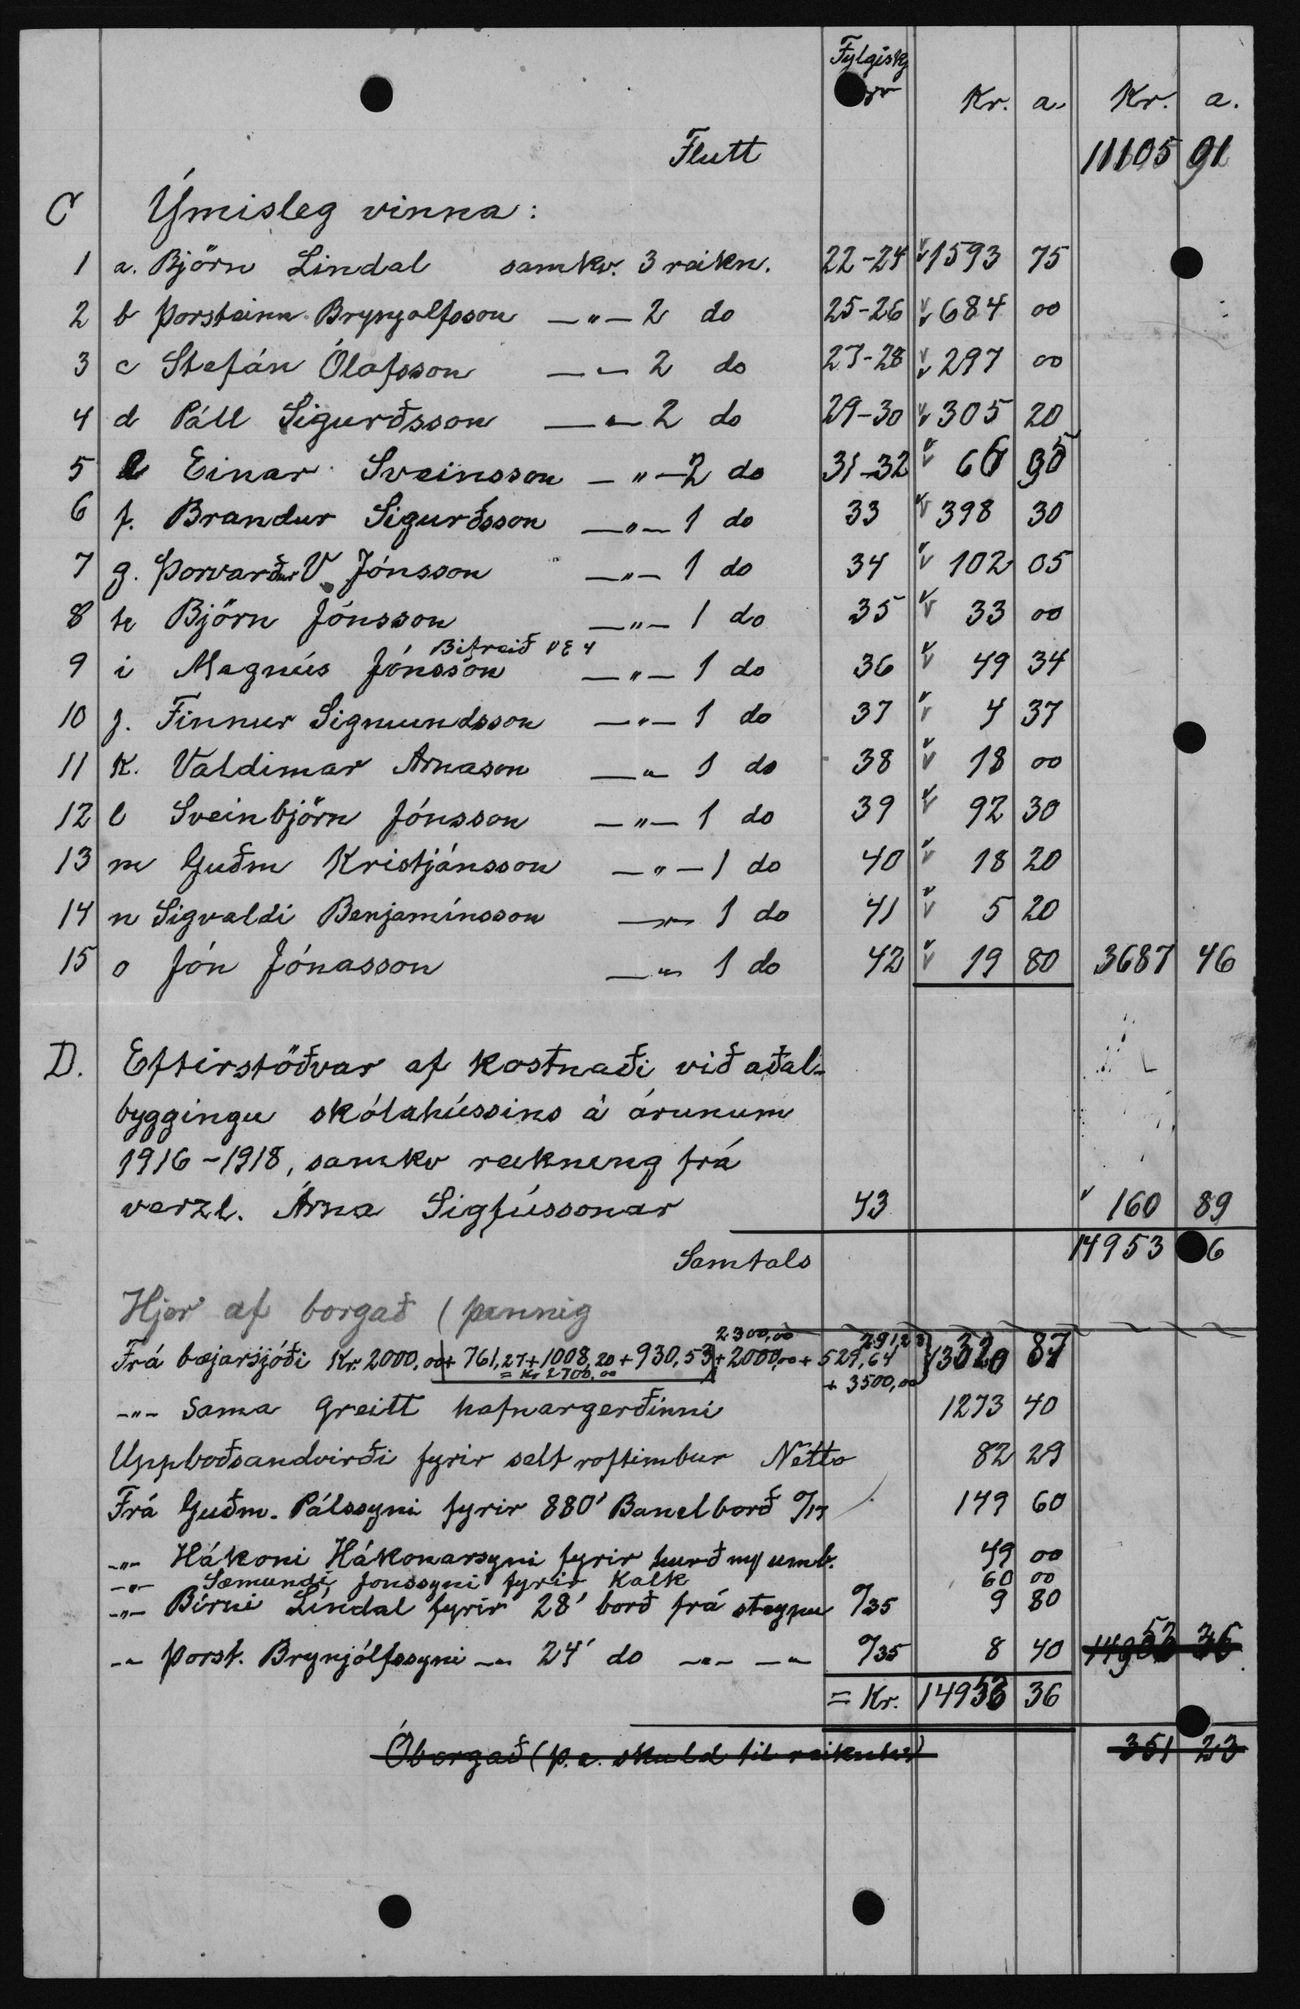 Fylgiskj
nr Kr. a. Kr. a.
Flutt 11105 91
C Ýmisleg vinna:
1 a. Björn Lindal samkv. 3 reikn. 22-24 1593 75
2 b Þorsteinn Brynjolfsson —„— 2 do 25-26 684 00
3 c Stefán Ólafsson —„— 2 do 27-28 297 00
4 d Páll Sigurðsson —„— 2 do 29-30 305 20
5 e Einar Sveinsson —„— 2 do 31-32 66 95
6 f. Brandur Sigurðsson —„— 1 do 33 398 30
7 g. Þorvarður V Jónsson —„— 1 do 34 102 05
8 h Björn Jónsson —„— 1 do 35 33 00
Bifreið VE 4
9 i Magnús Jónsson —„— 1 do 36 49 34
10 j. Finnur Sigmundsson —„— 1 do 37 4 37
11 k. Valdimar Árnason —„— 1 do 38 18 00
12 l Sveinbjörn Jónsson —„— 1 do 39 92 30
13 m Guðm Kristjánsson —„— 1 do 40 18 20
14 n Sigvaldi Benjamínsson —„— 1 do 41 5 20
15 o Jón Jónasson —„— 1 do 42 19 80 3687 46
D. Eftirstöðvar af kostnaði við aðal-
byggingu skólahússins á árunum
1916-1918, samkv reikning frá
verzl. Árna Sigfússonar 43 160 89
Samtals 14953 6
Hjer af borgað ( pennig
2300,00
Frá bæjarsjóði Kr 2000,00 + 761,27 + 1008,20 + 930,53 + 2000,00 + 529,64 13320 87
= Kr 2700,00 + 3500,00
-„- Sama greitt hafnargerðinni 1273 40
Uppboðsandvirði fyrir selt roftimbur Netto 82 29
Frá Guðm. Pálssyni fyrir 880' Banelborð 0/17 149 60
-„- Hákoni Hákonarsyni fyrir hurð m/ umb. 49 00
-„- Sæmundi Jonssyni fyrir Kalk 60 00
-„- Birni Lindal fyrir 28' borð frá steypu 0/35 9 80
-„- Þorst. Brynjólfssyni -„- 24' do -„- -„- 0/35 8 40 14953 36
= Kr. 14953 36
Óborgað (þ.e. skuld til reiknings) 351 23